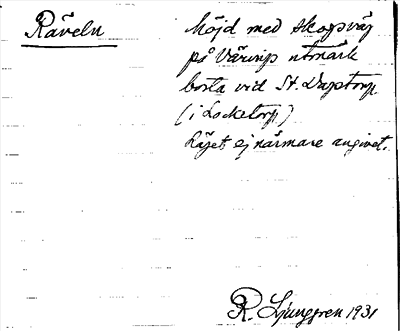 Räveln
höjd med skogsväg
på Värings utmark
borta vid St. Dapstorp
(i Locketorp)
Läget ej närmare angivet.
R. Ljunggren 1931